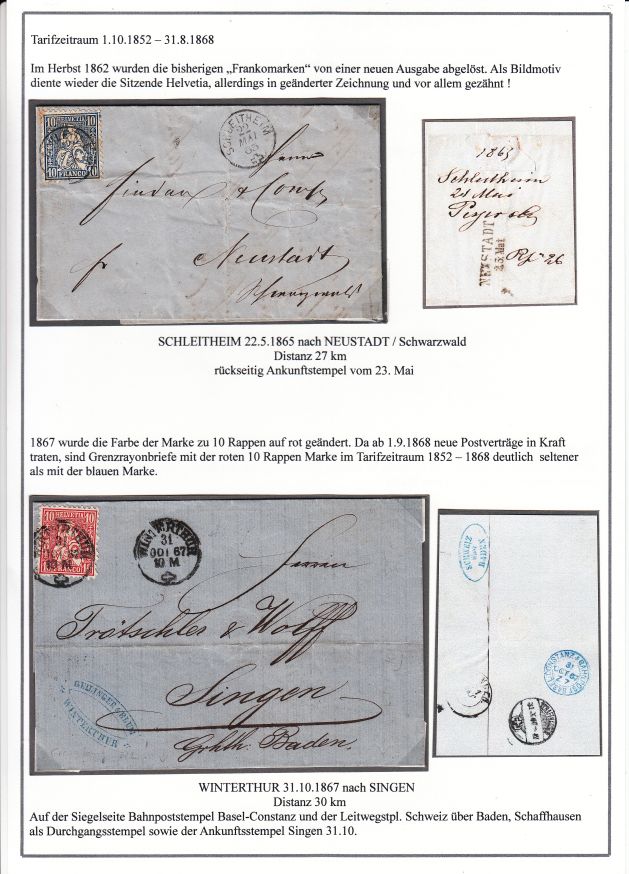 Tarifzeitraum 1.10.1852 – 31.8.1868
Im Herbst 1862 wurden die bisherigen „Frankomarken“ von einer neuen Ausgabe abgelöst. Als Bildmotiv
diente wieder die Sitzende Helvetia, allerdings in geänderter Zeichnung und vor allem gezähnt !
10 HELVETIA 10
10 FRANCO 10
SCHLEITHEIM
22
MAI
65
Herren
& Comp
Neustadt
Schwarzwald
1865
Schleitheim
21 Mai
NEUSTADT
23 Mai
26
SCHLEITHEIM 22.5.1865 nach NEUSTADT / Schwarzwald
Distanz 27 km
rückseitig Ankunftstempel vom 23. Mai
1867 wurde die Farbe der Marke zu 10 Rappen auf rot geändert. Da ab 1.9.1868 neue Postverträge in Kraft
traten, sind Grenzrayonbriefe mit der roten 10 Rappen Marke im Tarifzeitraum 1852 – 1868 deutlich seltener
als mit der blauen Marke.
10 HELVETIA 10
10 FRANCO
WINTERTHUR
31
OCT 67
10 M
Herren
Trötschler & Wolff
Singen
Grhth. Baden.
WINTERTHUR
SCHWEIZ
über
BADEN
WINTERTHUR 31.10.1867 nach SINGEN
Distanz 30 km
Auf der Siegelseite Bahnpoststempel Basel-Constanz und der Leitwegstpl. Schweiz über Baden, Schaffhausen
als Durchgangsstempel sowie der Ankunftsstempel Singen 31.10.